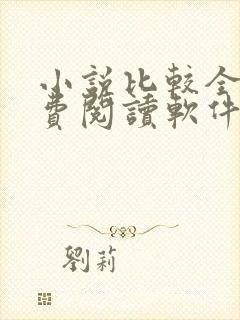 小説比較全
費閱讀軟件
劉莉